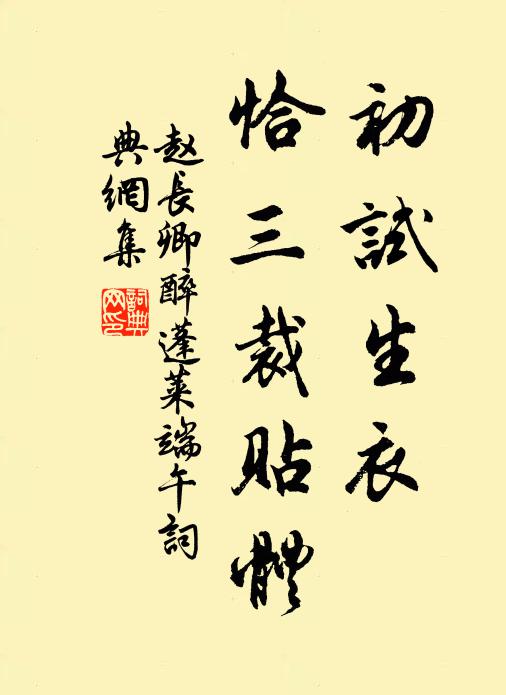 初試生衣
恰三裁貼體
赵長卿醉蓬萊端午詞
典網集
詞典网印